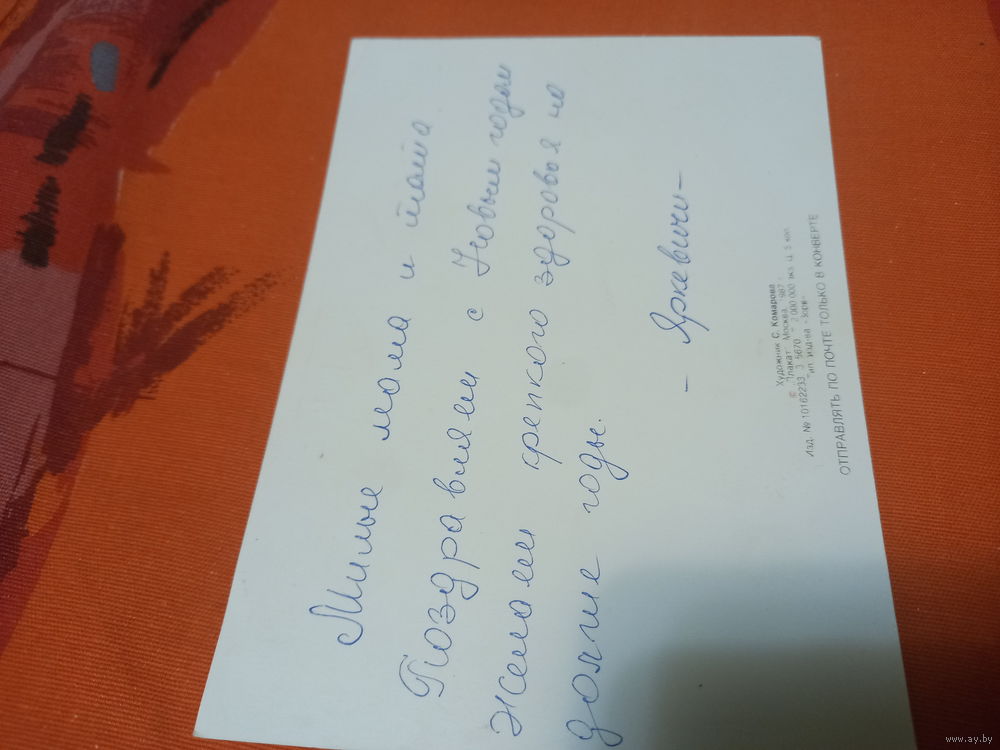 Милые мама и тата
Поздравляем с Новым годом
желаем крепкого здоровья на
долгие годы.
- Яркевичи -
Художник С. Комарова
© "Плакат" Москва 1987
Изд. № 10162233 З. 5670 2 000 000 экз. Ц. 5 коп.
Тип. изд-ва «Заря»
ОТПРАВЛЯТЬ ПО ПОЧТЕ ТОЛЬКО В КОНВЕРТЕ
www.ay.by